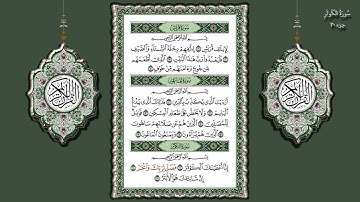 سُورَةُ الكَوْثَرِ
جزء ٣٠
سُورَةُ قُرَيْشٍ
بِسْمِ اللَّهِ الرَّحْمَٰنِ الرَّحِيمِ
لِإِيلَافِ قُرَيْشٍ ۝١ إِيلَافِهِمْ رِحْلَةَ الشِّتَاءِ وَالصَّيْفِ
۝٢ فَلْيَعْبُدُوا رَبَّ هَٰذَا الْبَيْتِ ۝٣ الَّذِي أَطْعَمَهُم
مِّن جُوعٍ وَآمَنَهُم مِّنْ خَوْفٍ ۝٤
سُورَةُ المَاعُونِ
بِسْمِ اللَّهِ الرَّحْمَٰنِ الرَّحِيمِ
أَرَأَيْتَ الَّذِي يُكَذِّبُ بِالدِّينِ ۝١ فَذَٰلِكَ الَّذِي يَدُعُّ
الْيَتِيمَ ۝٢ وَلَا يَحُضُّ عَلَىٰ طَعَامِ الْمِسْكِينِ ۝٣ فَوَيْلٌ
لِّلْمُصَلِّينَ ۝٤ الَّذِينَ هُمْ عَن صَلَاتِهِمْ سَاهُونَ
۝٥ الَّذِينَ هُمْ يُرَاءُونَ ۝٦ وَيَمْنَعُونَ الْمَاعُونَ ۝٧
سُورَةُ الكَوْثَرِ
بِسْمِ اللَّهِ الرَّحْمَٰنِ الرَّحِيمِ
إِنَّا أَعْطَيْنَاكَ الْكَوْثَرَ ۝١ فَصَلِّ لِرَبِّكَ وَانْحَرْ ۝٢
إِنَّ شَانِئَكَ هُوَ الْأَبْتَرُ ۝٣
القرآن الكريم
القرآن الكريم